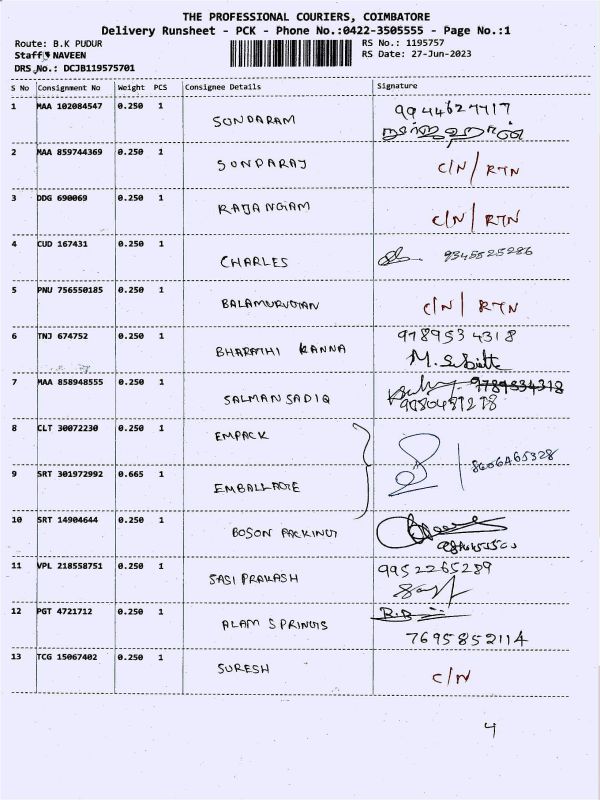 THE PROFESSIONAL COURIERS, COIMBATORE
Delivery Runsheet - PCK - Phone No.:0422-3505555 - Page No.:1
Route: B.K PUDUR
RS No.: 1195757
Staff: NAVEEN
RS Date: 27-Jun-2023
DRS No.: DCJB119575701
S No Consignment No Weight PCS Consignee Details Signature
1 MAA 102084547 0.250 1 SUNDARAM 9944627717
2 MAA 859744369 0.250 1 SUNDARAJ C/N / RTN
3 DDG 690069 0.250 1 C/N / RTN
4 CUD 167431 0.250 1 CHARLES 9345525286
5 PNU 756550185 0.250 1 BALAMURUGAN C/N / RTN
6 TNJ 674752 0.250 1 BHARATHI KANNA 9789534318
7 MAA 858948555 0.250 1 SALMAN SADIQ 9789534318
8 CLT 30072230 0.250 1 EMPACK
9 SRT 301972992 0.665 1 8606465328
10 SRT 14904644 0.250 1 BOSON PACKING
11 VPL 218558751 0.250 1 SASI PRAKASH 9952265289
12 PGT 4721712 0.250 1 ALAM SPRINGS
7695852114
13 TCG 15067402 0.250 1 SURESH C/N
4